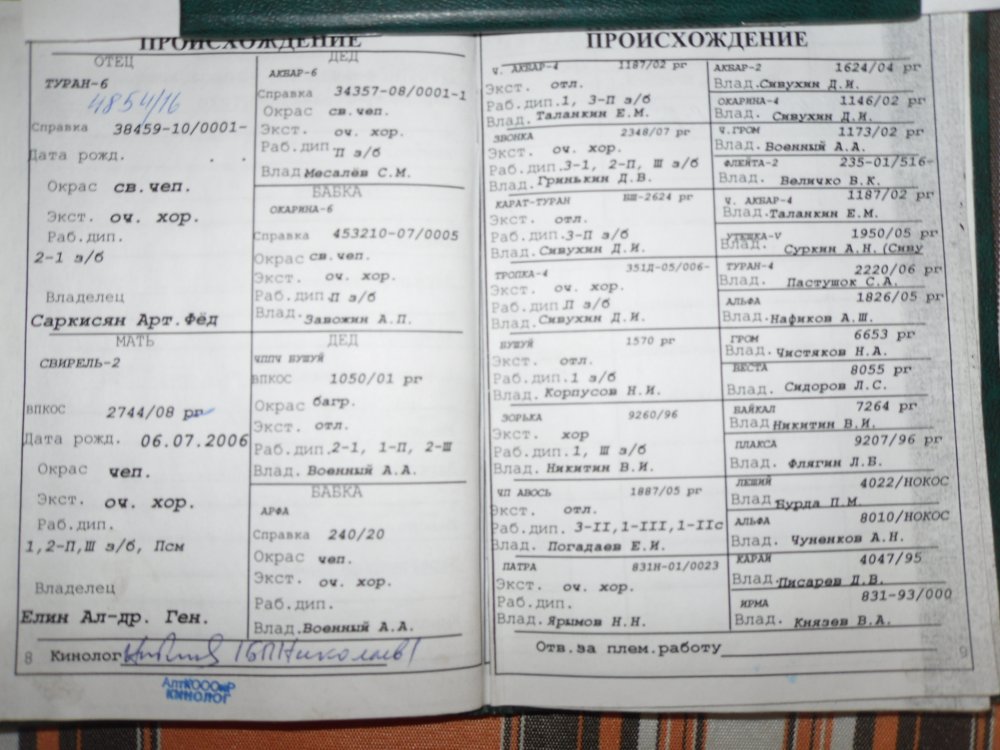 ПРОИСХОЖДЕНИЕ
ОТЕЦ
ТУРАН-6
4854/16
Справка 38459-10/0001-
Дата рожд. . .
Окрас св.чеп.
Экст. оч. хор.
Раб.дип.
2-1 з/б
Владелец
Саркисян Арт.Фёд
МАТЬ
СВИРЕЛЬ-2
ВПКОС 2744/08 рг
Дата рожд. 06.07.2006
Окрас чеп.
Экст. оч. хор.
Раб.дип.
1,2-П,Ш з/б, Псм
Владелец
Елин Ал-др. Ген.
ДЕД
АКБАР-6
Справка 34357-08/0001-1
Окрас св.чеп.
Экст. оч. хор.
Раб.дип П з/б
Влад Месалёв С.М.
БАБКА
ОКАРИНА-6
Справка 453210-07/0005
Окрас св.чеп.
Экст. оч. хор.
Раб.дип П з/б
Влад. Завожин А.П.
ДЕД
ЧППЧ БУШУЙ
ВПКОС 1050/01 рг
Окрас багр.
Экст. отл.
Раб.дип.2-1, 1-П, 2-Ш
Влад. Военный А.А.
БАБКА
АРФА
Справка 240/20
Окрас чеп.
Экст. оч. хор.
Раб.дип.
Влад.Военный А.А.
8 Кинолог (БП Николаев)
АлтКОООиР
КИНОЛОГ
ПРОИСХОЖДЕНИЕ
Ч. АКБАР-4 1187/02 рг
Экст. отл.
Раб.дип.1, 3-П з/б
Влад. Таланкин Е.М.
ЗВОНКА 2348/07 рг
Экст. оч. хор.
Раб.дип.3-1, 2-П, Ш з/б
Влад.Гринькин Д.В.
КАРАТ-ТУРАН БШ-2624 рг
Экст. отл.
Раб.дип.3-П з/б
Влад. Сивухин Д.И.
ТРОПКА-4 351Д-05/006-
Экст. оч. хор.
Раб.дип П з/б
Влад.Сивухин Д.И.
БУШУЙ 1570 рг
Экст. отл.
Раб.дип.1 з/б
Влад. Корпусов Н.И.
ЗОРЬКА 9260/96
Экст. хор
Раб.дип.1, Ш з/б
Влад. Никитин В.И.
ЧП АВОСЬ 1887/05 рг
Экст. отл.
Раб.дип. 3-II,1-III,1-IIс
Влад. Погадаев Е.И.
ПАТРА 831Н-01/0023
Экст. оч. хор.
Раб.дип.
Влад.Ярымов Н.Н.
АКБАР-2 1624/04 рг
Влад.Сивухин Д.И.
ОКАРИНА-4 1146/02 рг
Влад. Сивухин Д.И.
Ч.ГРОМ 1173/02 рг
Влад. Военный А.А.
ФЛЕЙТА-2 235-01/516-
Влад. Величко В.К.
Ч. АКБАР-4 1187/02 рг
Влад.Таланкин Е.М.
УТЕШКА-V 1950/05 рг
Влад. Суркин А.Н.(Сиву
ТУРАН-4 2220/06 рг
Влад. Пастушок С.А.
АЛЬФА 1826/05 рг
Влад.Нафиков А.Ш.
ГРОМ 6653 рг
Влад.Чистяков Н.А.
ВЕСТА 8055 рг
Влад. Сидоров Л.С.
БАЙКАЛ 7264 рг
Влад Никитин В.И.
ПЛАКСА 9207/96 рг
Влад. Флягин Л.Б.
ЛЕШИЙ 4022/НОКОС
Влад Бурда П.М
АЛЬФА 8010/НОКОС
Влад. Чуненков А.Н.
КАРАЙ 4047/95
Влад.Писарев Д.В.
ИРМА 831-93/000
Влад. Князев В.А.
Отв.за плем.работу
9